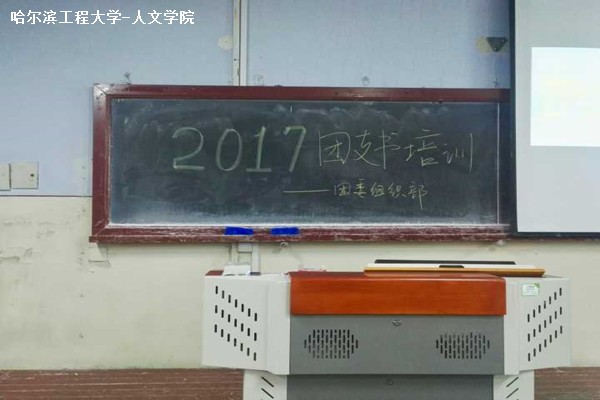 哈尔滨工程大学-人文学院
2017团支书培训
——团委组织部